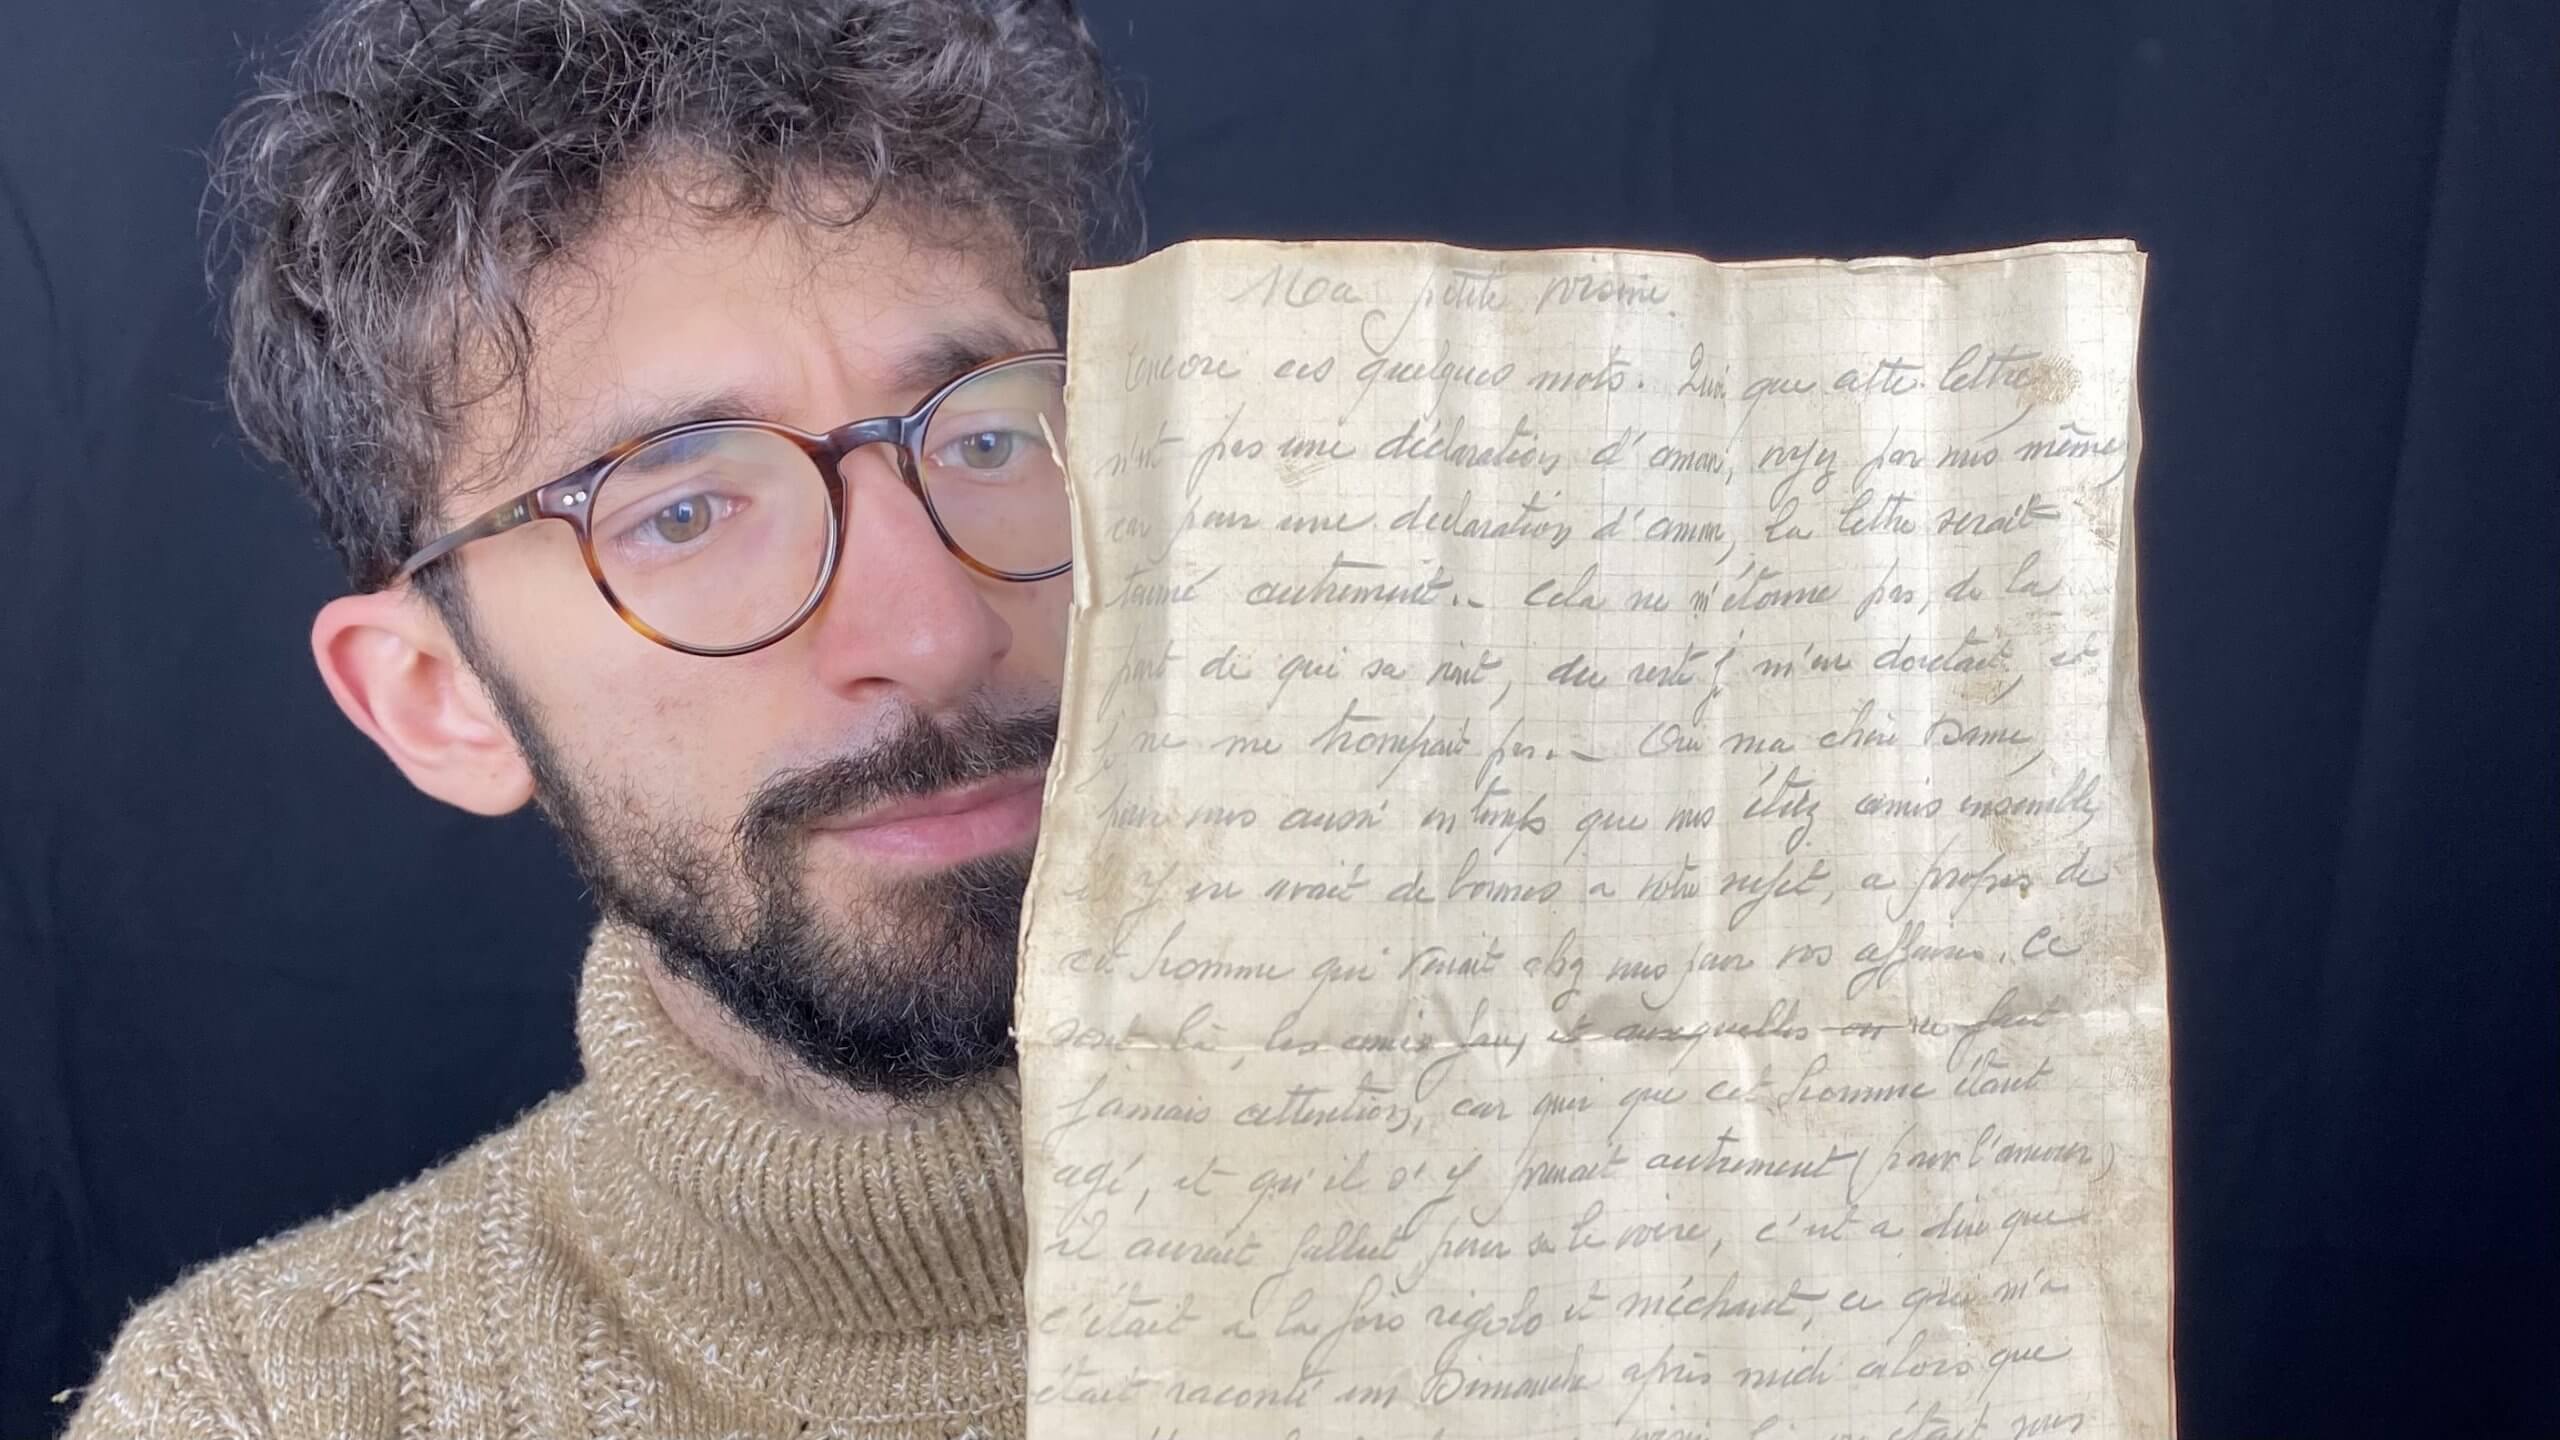 Ma petite voisine.
Encore ces quelques mots. Quoi que cette lettre,
n'est pas une déclaration d'amour, voyez par vous même,
car pour une déclaration d'amour, la lettre serait
tourné autrement.- Cela ne m'étonne pas, de la
part de qui sa vient, du reste je m'en doutait, et
je ne me trompait pas.- Oui ma chère Dame,
pour vous aussi en temps que vous étiez amis ensembles
il y en avait de bonnes a votre sujet, a propos de
cet homme qui venait chez vous pour vos affaires. Ce
sont là, les amis faux et auxquelles on ne fait
jamais attention, car quoi que cet homme étant
agé, et qu'il s'y prenait autrement (pour l'amour)
il aurait fallut pour sa le voire, c'est a dire que
c'était a la fois rigolo et méchant, ce qui m'a
était raconté un Dimanche après midi alors que
était